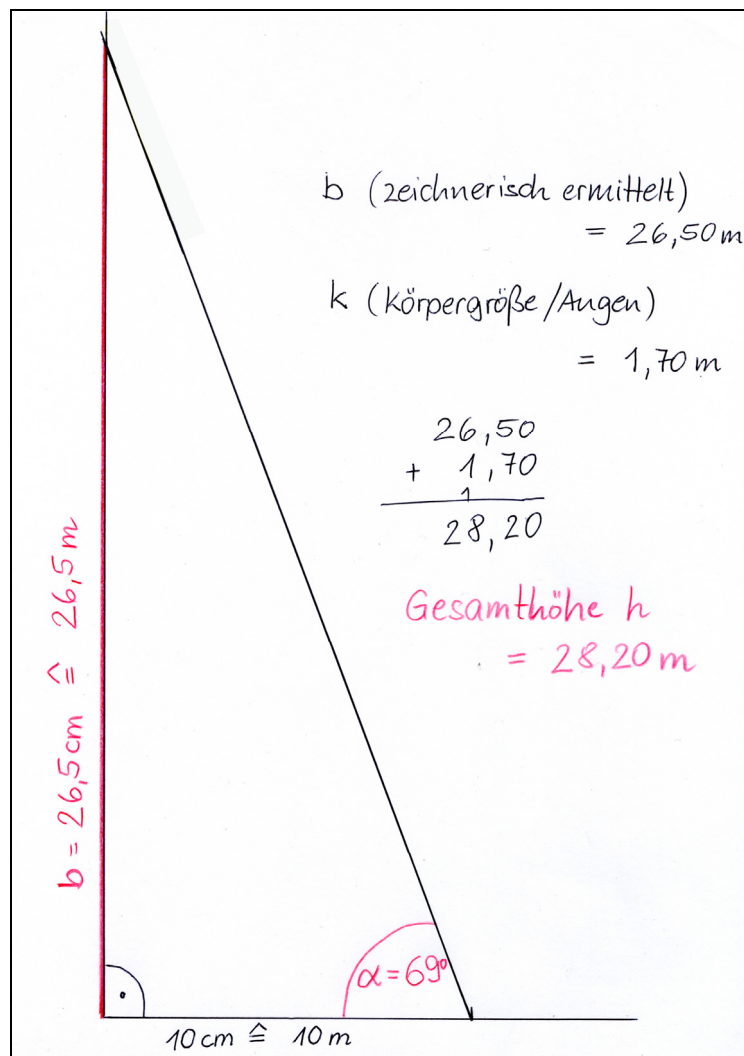 b (zeichnerisch ermittelt)
= 26,50 m
k (Körpergröße/Augen)
= 1,70 m
26,50
+ 1,70
1
28,20
Gesamthöhe h
= 28,20 m
b = 26,5 cm ≙ 26,5 m
α = 69°
10 cm ≙ 10 m